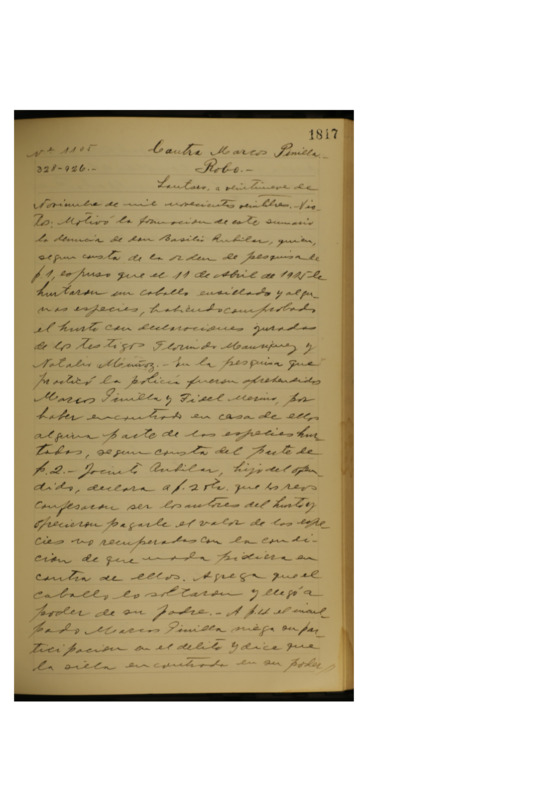 1817
Nº 1105 Contra Marcos Pinilla.-
328-926.- Robo.-
Lautaro, a veintinueve de
Noviembre de mil novecientos veintitres.- Vis-
tos: Motivó la formacion de este sumario
la denuncia de don Basilio Rubilar, quien,
segun consta de la orden de pesquisa de
f 1, expuso que el 11 de Abril de 1925 le
hurtaron un caballo ensillado y algu-
nas especies, habiendo comprobado
el hurto con declaraciones juradas
de los testigos Florindo Manriquez y
Natalio Muñoz.- En la pesquisa que
practicó la policía fueron aprehendidos
Marcos Pinilla y Fidel Merino, por
haber encontrado en casa de ellos
alguna parte de las especies hur-
tadas, segun consta del parte de
f. 2.- Jacinto Rubilar, hijo del ofen-
dido, declara a f. 2 vta. que los reos
confesaron ser los autores del hurto y
ofrecieron pagarle el valor de las espe-
cies no recuperadas con la condi-
cion de que nada pidiera en
contra de ellos. Agrega que el
caballo lo soltaron y llegó a
poder de su padre.- A f. el incul-
pado Marcos Pinilla niega su par-
ticipacion en el delito y dice que
la silla encontrada en su poder